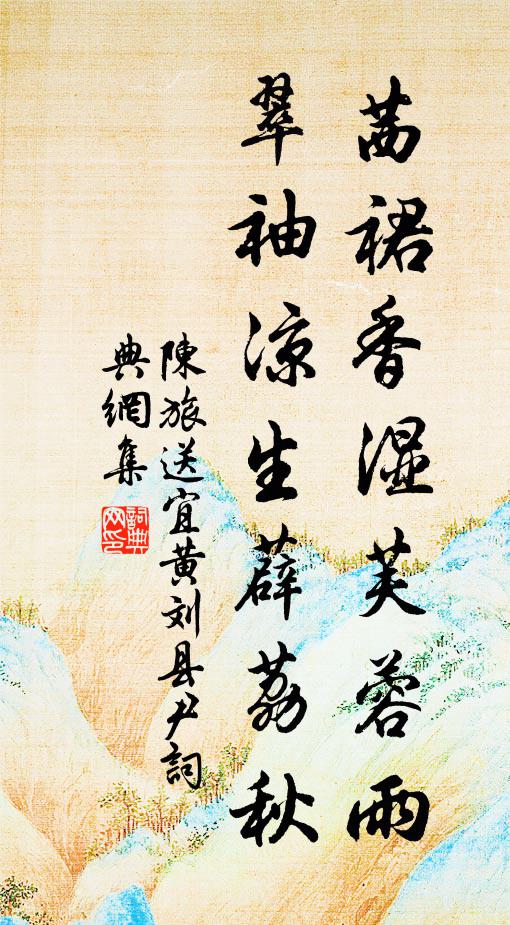 茜裙香湿芙蓉雨
翠袖凉生薜荔秋
陳旅送宜黄刘县尹詞
典網集
詞典
网印